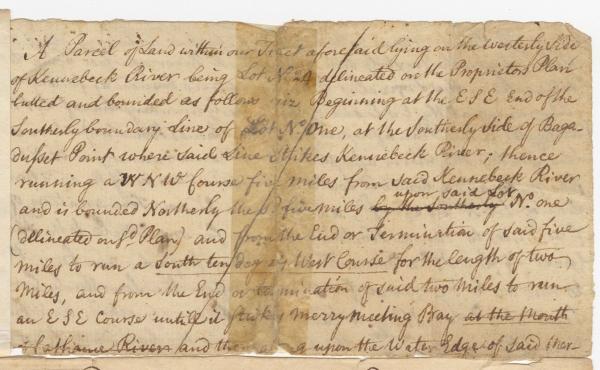 A Parcel of Land within our Tract aforesaid lying on the Westerly Side
of Kennebeck River being Lot No. 24 delineated on the Proprietors Plan
butted and bounded as follows viz Beginning at the ESE End of the
Southerly boundary Line of Lot No. One, at the Southerly Side of Baga-
dusset Point where said Line Strikes Kennebeck River; thence
running a WNW Course five miles from said Kennebeck River
upon said Lot
and is bounded Northerly the sd. five miles by the Southerly No. one
(delineated on sd. Plan) and from the End or Termination of said five
miles to run a South ten deg West Course for the length of two
Miles, and from the End or termination of said two miles to run
an ESE Course untill it strikes Merrymeeting Bay at the Mouth
of Cathance River and then upon the Water Edge of said Mer-